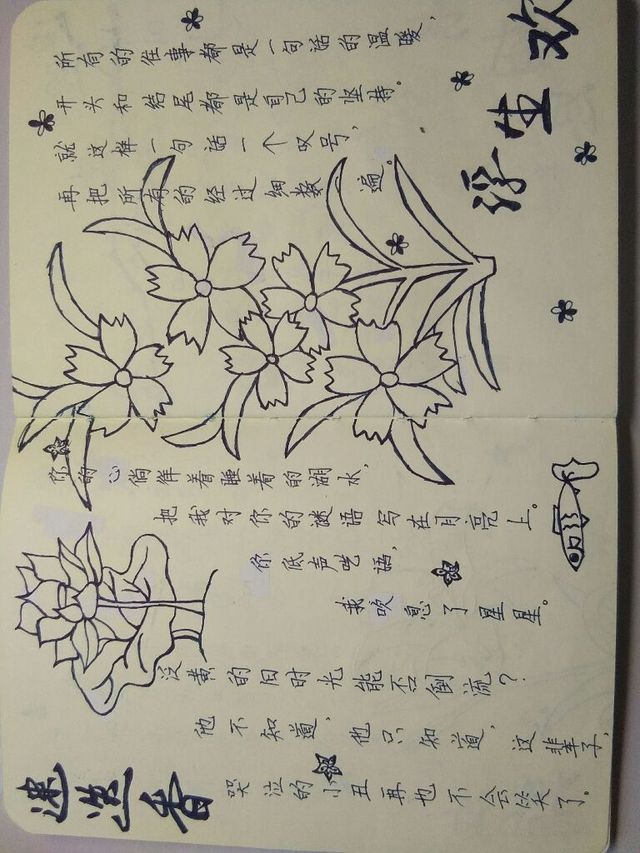 浮生欢
所有的往事都是一句话的温暖，
开头和结尾都是自己的坚持。
就这样一句话一个叹号，
再把所有的经过细数一遍。
你的心徜徉着睡着的湖水，
把我对你的谜语写在月亮上。
你低声呓语，
我吹息了星星。
泛黄的旧时光能否倒流？
他不知道，他只知道，这辈子，
哭泣的小丑再也不会笑了。
迷迭香